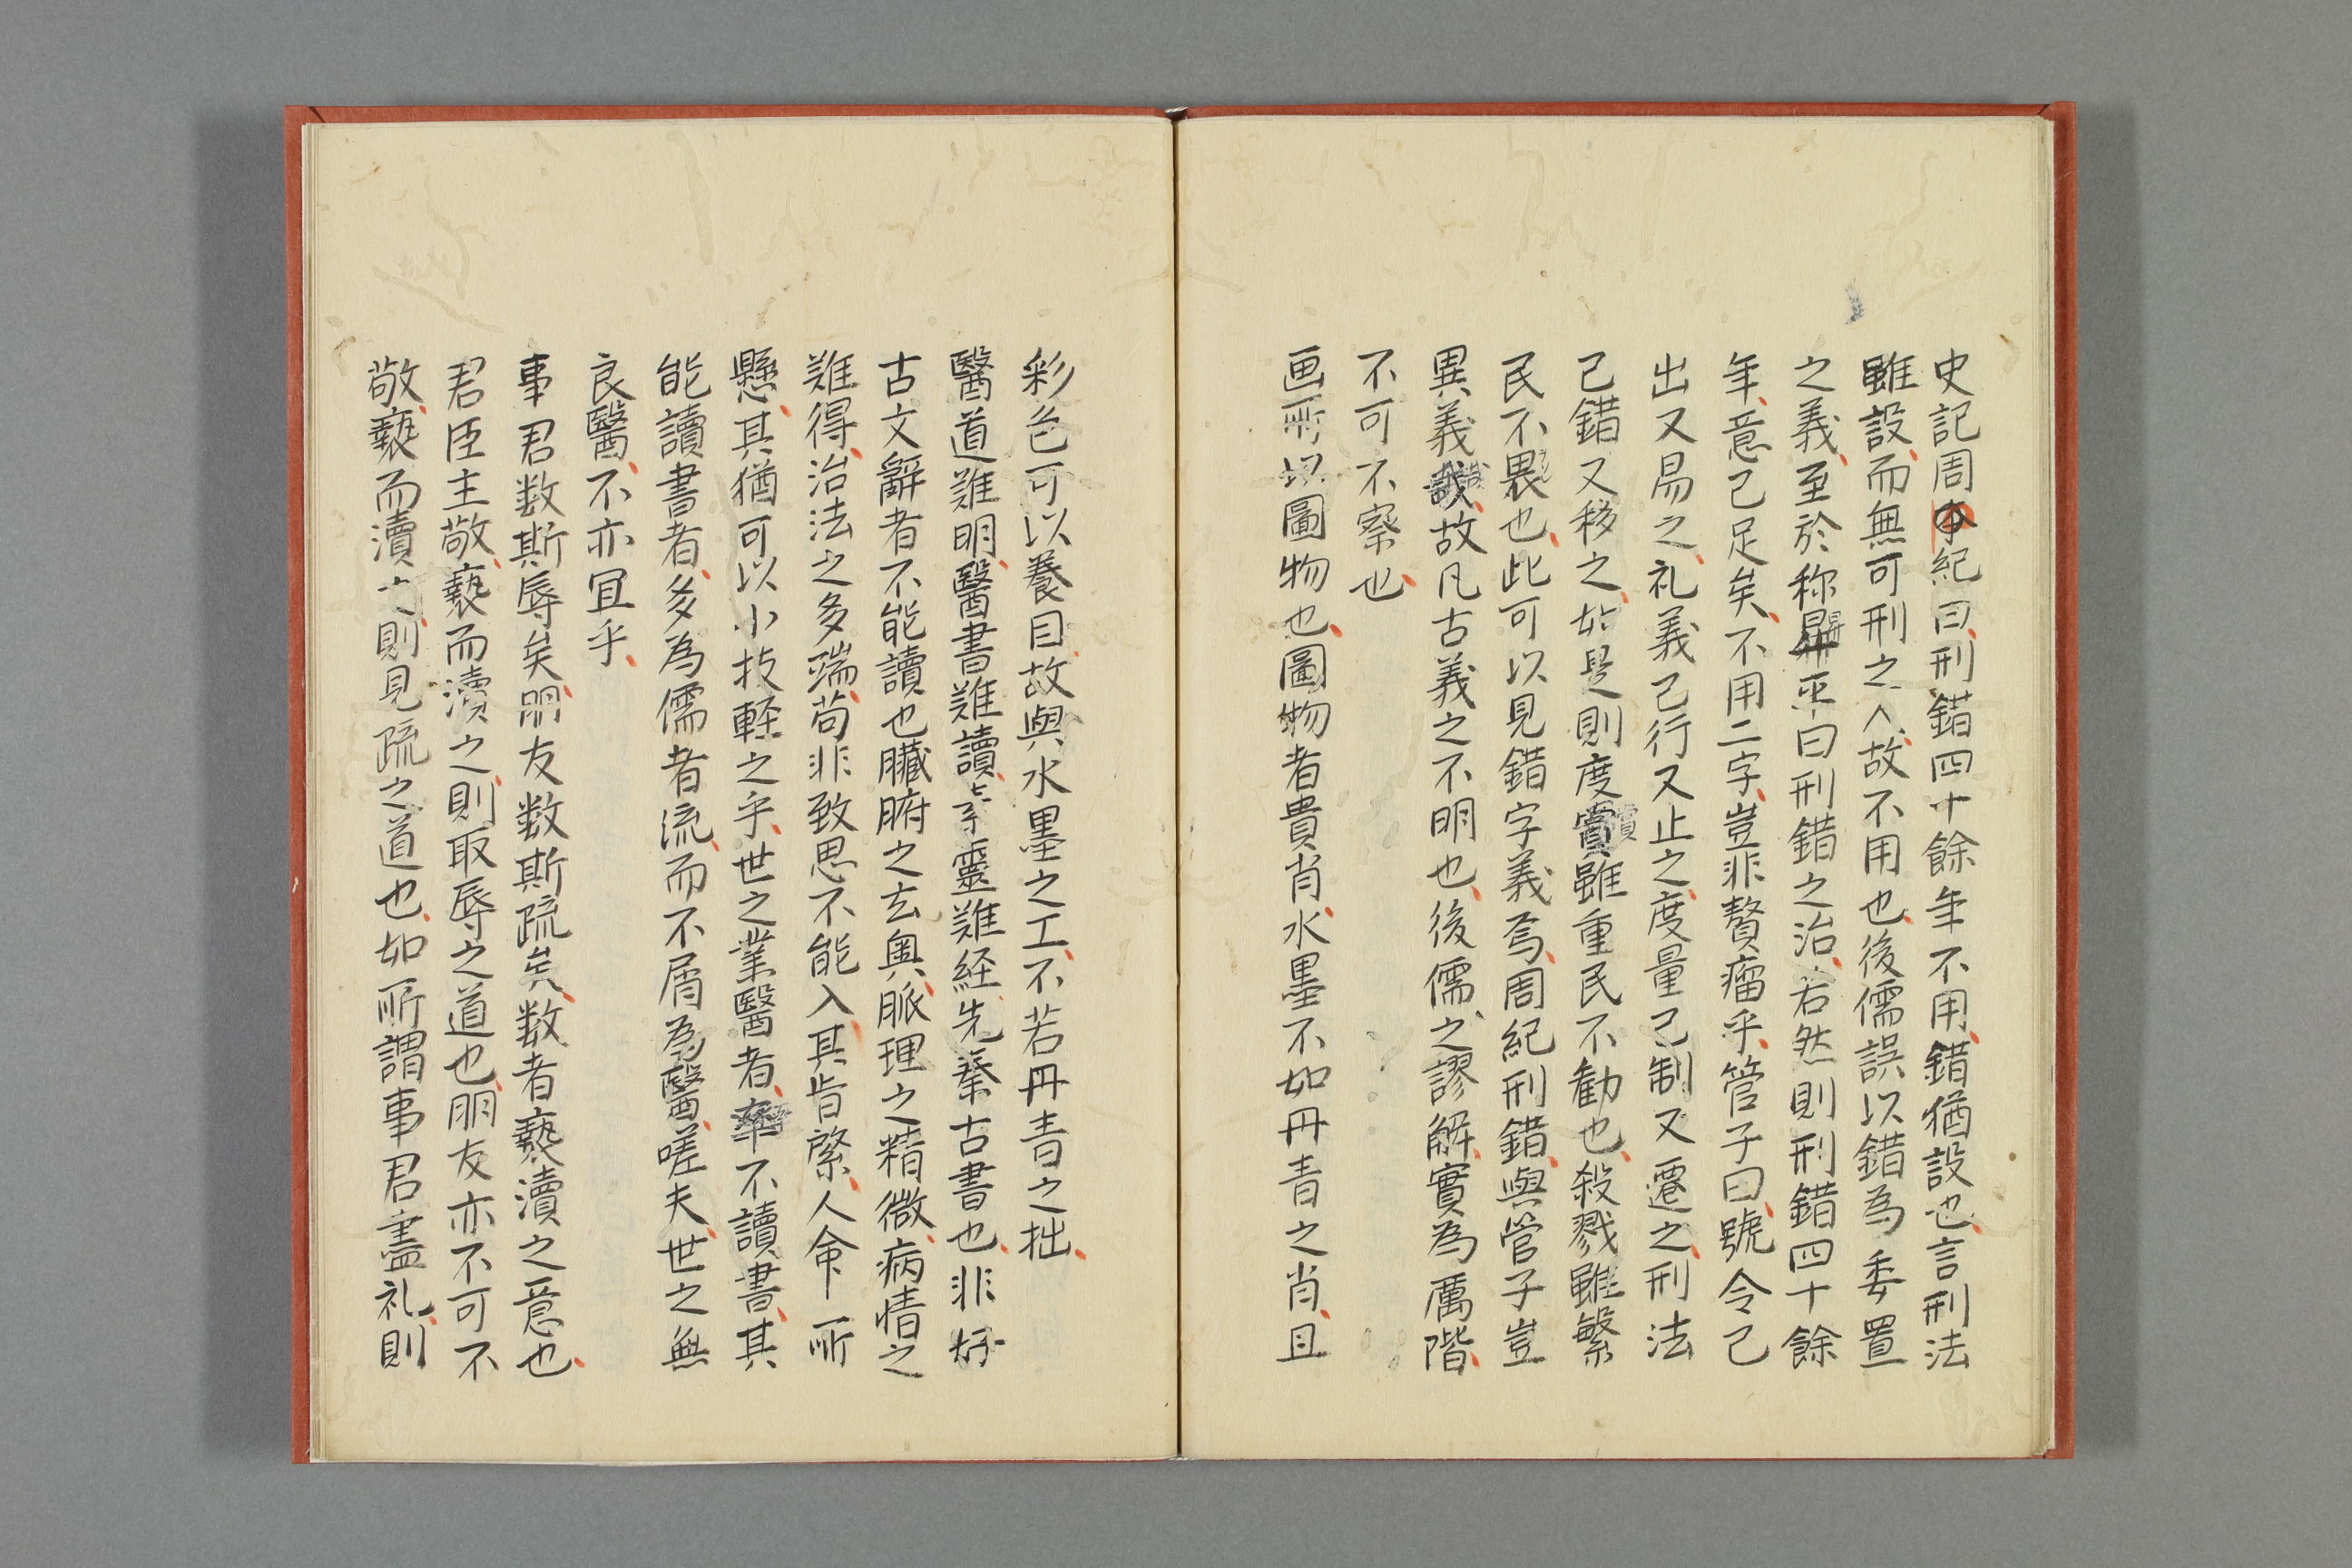 史記周本紀曰刑錯四十餘年不用錯猶設也言刑法
雖設而無可刑之人故不用也後儒誤以錯為委置
之義至於称昇平曰刑錯之治若然則刑錯四十餘
年意已足矣不用二字豈非贅瘤乎管子曰號令已
出又易之礼義已行又止之度量已制又遷之刑法
已錯又移之如是則度賞雖重民不勧也殺戮雖繁
民不畏也此可以見錯字義焉周紀刑錯與管子豈
異義哉故凡古義之不明也後儒之謬解實為厲階
不可不察也
画所以圖物也圖物者貴肖水墨不如丹青之肖且
彩色可以養目故與水墨之工不若丹青之拙
醫道難明醫書難讀素靈難経先秦古書也非好
古文辭者不能讀也臓腑之玄奥脈理之精微病情之
難得治法之多端苟非致思不能入其肯綮人命所
懸其猶可以小技軽之乎世之業醫者率不讀書其
能讀書者多為儒者流而不屑為醫嗟夫世之無
良醫不亦冝乎
事君数斯辱矣朋友数斯疏矣数者褻瀆之意也
君臣主敬褻而瀆之則取辱之道也朋友亦不可不
敬褻而瀆之則見疏之道也如所謂事君盡礼則